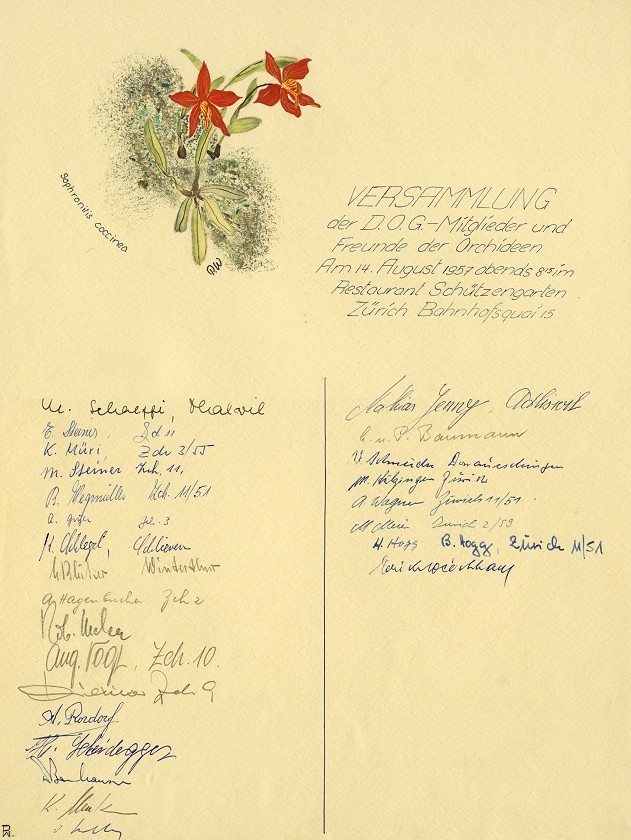 Sophronitis coccinea
RW
VERSAMMLUNG
der D.O.G.-Mitglieder und
Freunde der Orchideen
Am 14. August 1957 abends 8¹⁵ im
Restaurant Schützengarten
Zürich Bahnhofsquai 15
M. Schaeppi, Thalwil
E. Steiner, Zch 11
K. Müri, Zch 3/55
M. Steiner Zch. 11.
B. Wegmüller Zch. 11/51
Zch. 3
H. Schlegel, Schlieren
Winterthur
A Hagenbucher Zch 2
Rob.
Aug. Vogt, Zch. 10.
Zch 9
A. Rordorf.
Scheidegger
K.
Mathias Jenny, Adliswil
E. u. P. Baumann
Schneider Donaueschingen
M. Hitzinger Zürich
A Wagner Zürich 11/51
M Meier Zürich 2/59
H. Hogg B. Hogg, Zürich 11/51